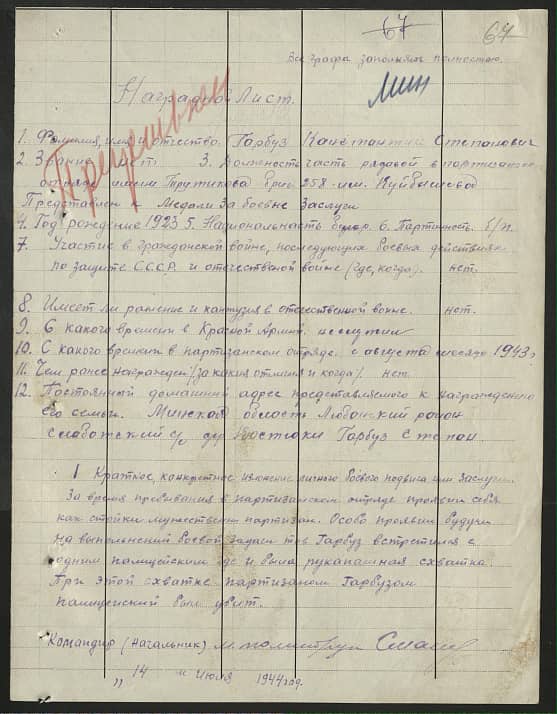 67 67
Все графы заполнять полностью.
Мин
Наградной Лист.
1. Фамилия, имя, отчество. Гарбуз Канстантин Степанович
2. Звание нет. 3. Должность часть рядовой в партизанско
отряде имени бриг 258 им. Куйбышева
Представлен к Медали За боевые Заслуги
4. Год рождение 1923 5. Национальность белор. 6. Партийность. б/п.
7. Участие в гражданской войне, последующих боевых действиях
по защите С.С.С.Р. и отечественой войне (где, когда). нет.
8. Имеет ли ранение и кантузия в отечественной войне. нет.
9. С какого времени в Красной Армии. не служил
10. С какого времени в партизанском отряде. с августа месяца 1943 г
11. Чем ранее награжден (за какия отличия и когда). нет.
12. Постоянный домашний адрес представляемого к награждению
его семьи. Минская область Любанский район
с/с дер Гарбуз Степан.
1 Краткое, конкретное изложение личного боевого подвига или Заслуги.
За время пребивания в партизанском отряде проявил себя
как стойкий мужествен партизан. Особо проявил будучи
на выполнений боевой задачи тов Гарбуз встретился с
одним полицейским где и была рукапашная схватка.
При этой схватке партизаном Гарбузом
полицейский был убит.
Командир (Начальник) м. политрук
„ 14 " Июля 1944 год.